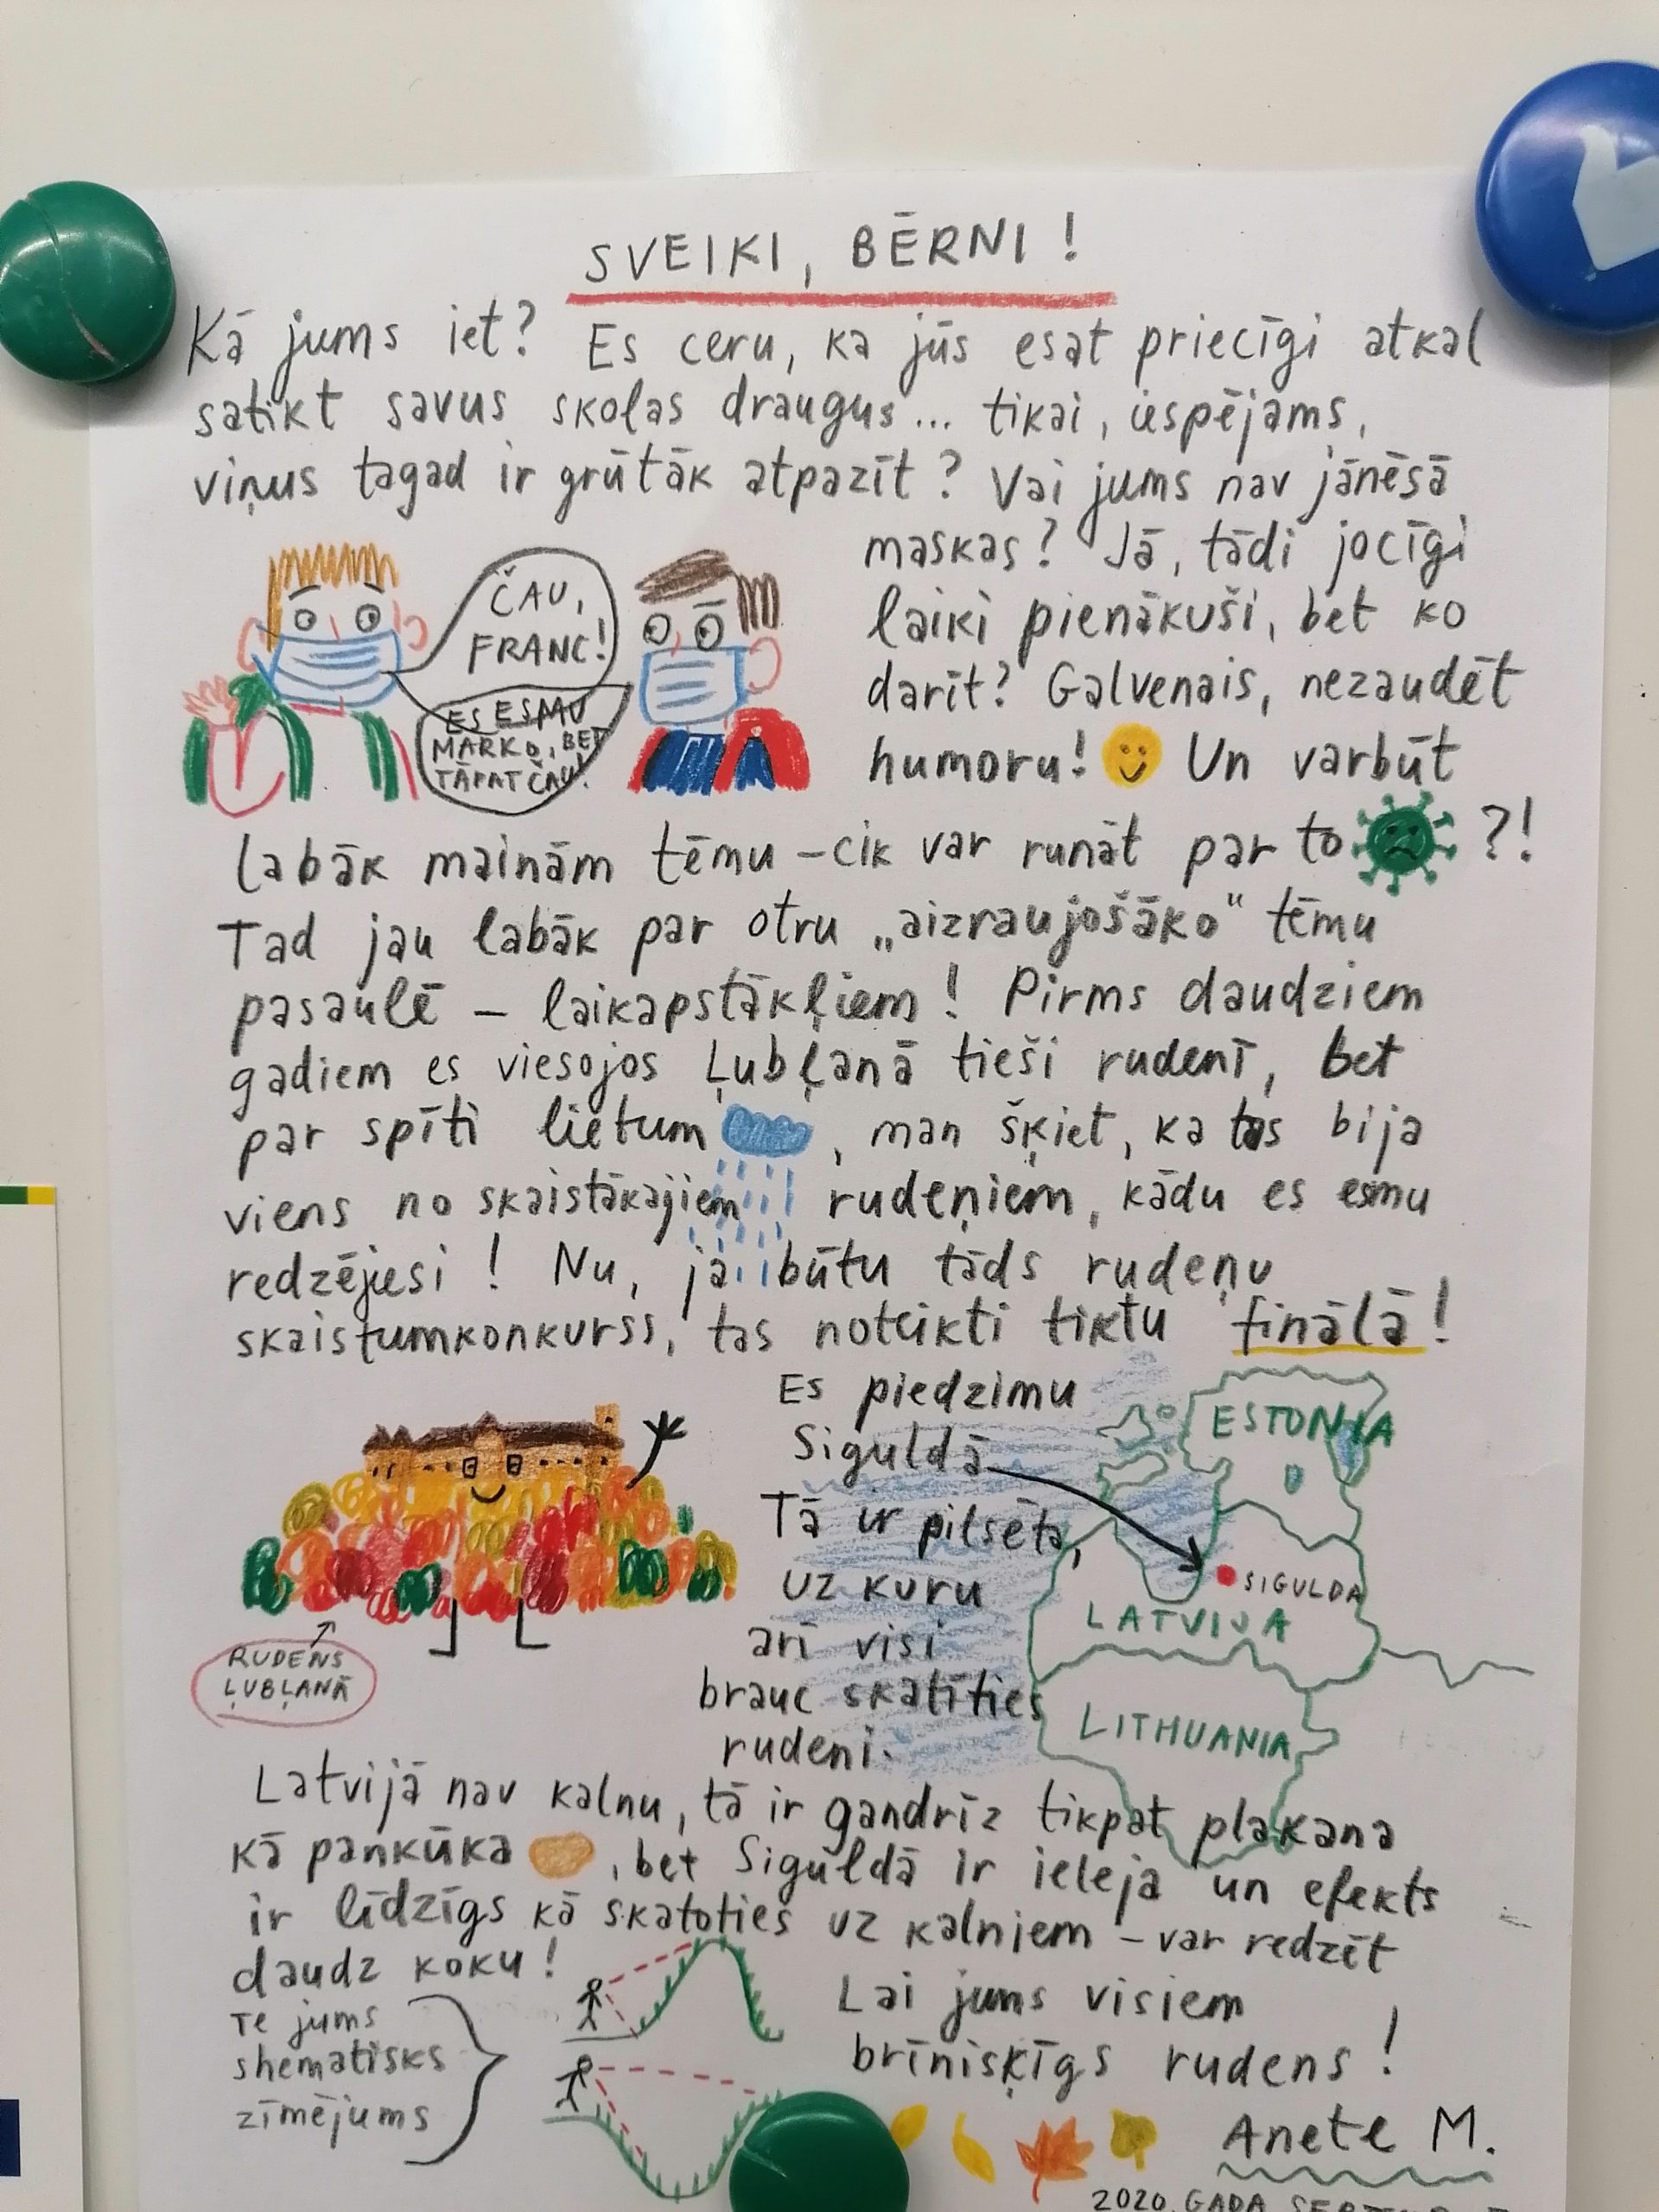 SVEIKI, BĒRNI!
Kā jums iet? Es ceru, ka jūs esat priecīgi atkal
satikt savus skolas draugus... tikai, iespējams,
viņus tagad ir grūtāk atpazīt? Vai jums nav jānēsā
maskas? Jā, tādi jocīgi
laiki pienākuši, bet ko
darīt? Galvenais, nezaudēt
humoru! Un varbūt
ČAU,
FRANC!
ES ESMU
MARKO, BET
TĀPAT ČAU!
labāk mainām tēmu - cik var runāt par to ?!
Tad jau labāk par otru „aizraujošāko" tēmu
pasaulē - laikapstākļiem! Pirms daudziem
gadiem es viesojos Ļubļanā tieši rudenī, bet
par spīti lietum , man šķiet, ka tas bija
viens no skaistākajiem rudeņiem, kādu es esmu
redzējusi! Nu, ja būtu tāds rudeņu
skaistumkonkurss, tas noteikti tiktu finālā!
Es piedzimu
Siguldā
Tā ir pilsēta,
uz kuru
arī visi
brauc skatīties
rudeni.
ESTONIA
SIGULDA
LATVIJA
LITHUANIA
RUDENS
ĻUBĻANĀ
Latvijā nav kalnu, tā ir gandrīz tikpat plakana
kā pankūka , bet Siguldā ir ieleja un efekts
ir līdzīgs kā skatoties uz kalniem - var redzēt
daudz koku!
Te jums
shematisks
zīmējums
Lai jums visiem
brīnišķīgs rudens!
Anete M.
2020. GADA